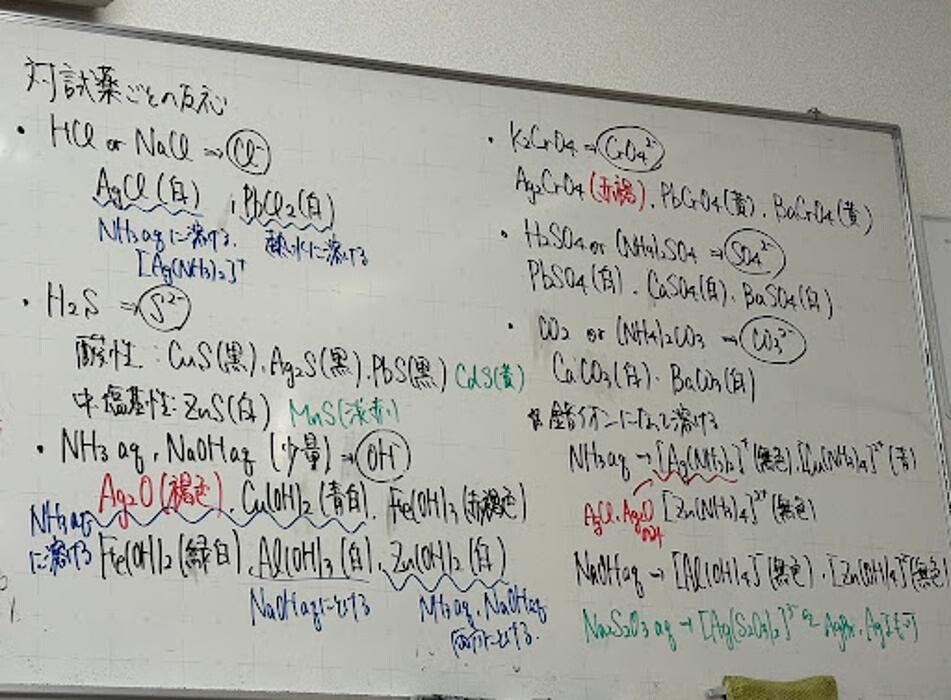 対試薬ごとの反応
・HCl or NaCl → Cl⁻
AgCl(白), PbCl2(白)
NH3aqに溶ける. 熱水に溶ける
[Ag(NH3)2]⁺
・H2S → S²⁻
酸性: CuS(黒), Ag2S(黒), PbS(黒) CdS(黄)
中・塩基性: ZnS(白) MnS(淡赤)
・NH3aq, NaOHaq (少量) → OH⁻
Ag2O(褐色), Cu(OH)2(青白), Fe(OH)3(赤褐色)
NH3aqに溶ける
Fe(OH)2(緑白), Al(OH)3(白), Zn(OH)2(白)
NaOHaqにとける NH3aq, NaOHaq
両方にとける.
・K2CrO4 → CrO4²⁻
Ag2CrO4(赤褐), PbCrO4(黄), BaCrO4(黄)
・H2SO4 or (NH4)2SO4 → SO4²⁻
PbSO4(白), CaSO4(白), BaSO4(白)
・CO2 or (NH4)2CO3 → CO3²⁻
CaCO3(白), BaCO3(白)
錯イオンになって溶ける
NH3aq → [Ag(NH3)2]⁺(無色), [Cu(NH3)4]²⁺(青)
AgCl, Ag2O [Zn(NH3)4]²⁺(無色)
NaOHaq → [Al(OH)4]⁻(無色), [Zn(OH)4]²⁻(無色)
Na2S2O3aq → [Ag(S2O3)2]³⁻ AgBr, AgI